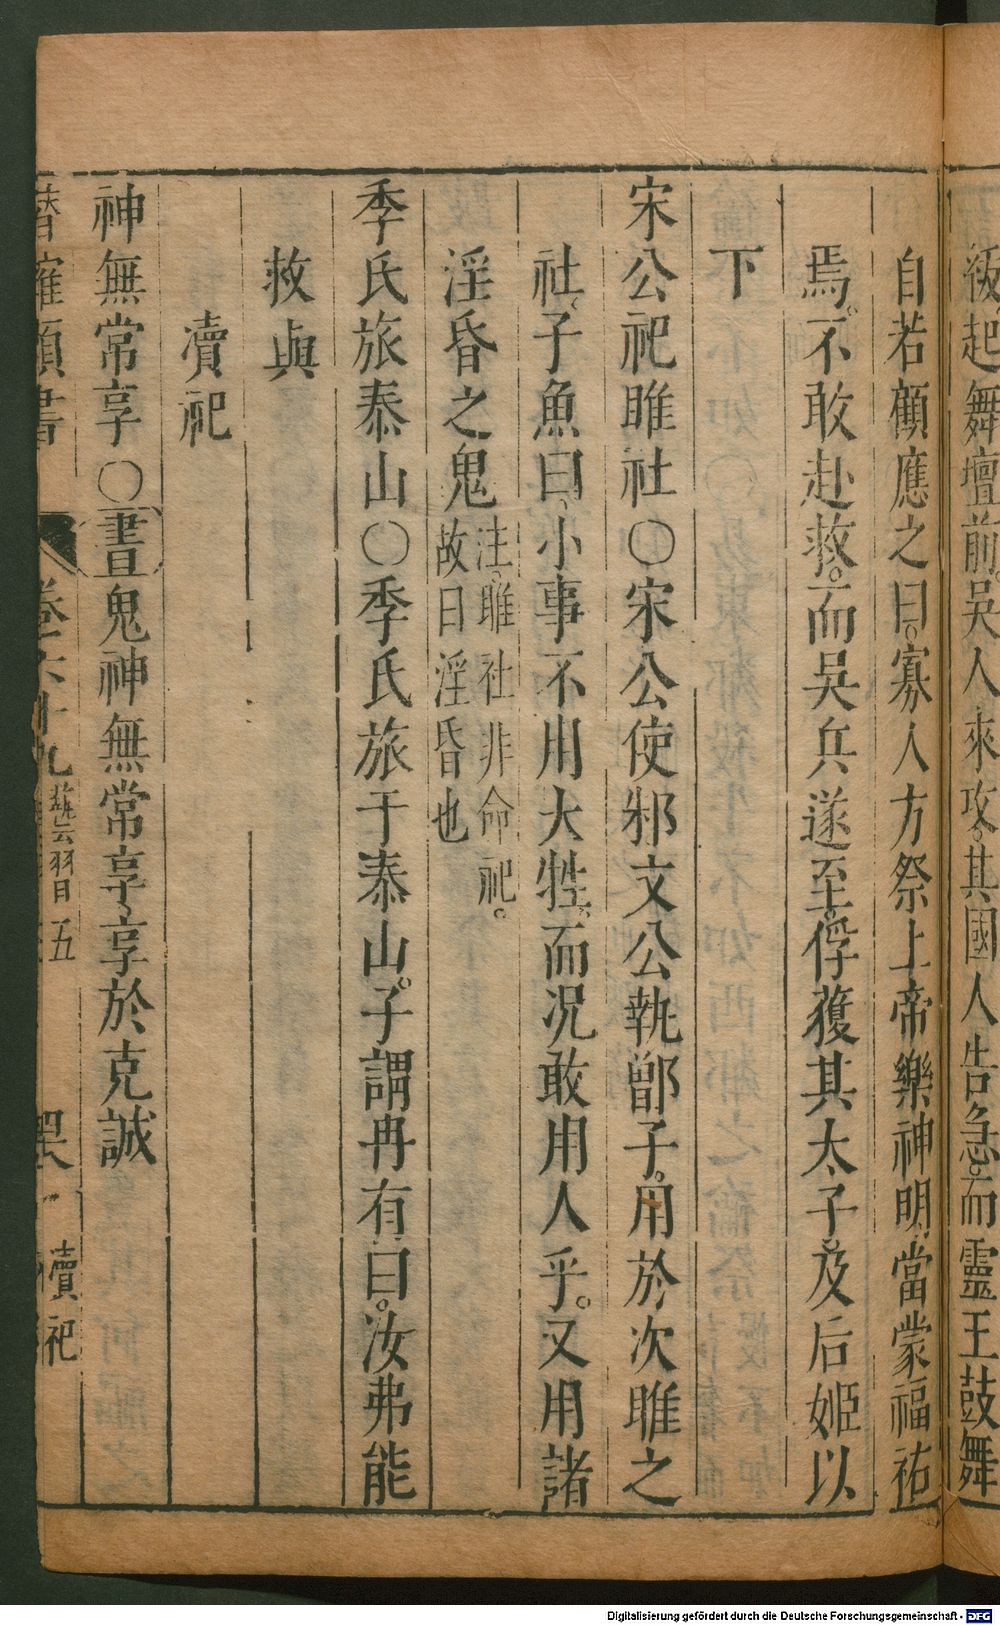 紱起舞壇前吳人來攻其國人告急而靈王鼓舞
自若顧應之曰寡人方祭上帝樂神明當蒙福祐
焉不敢赴救而吳兵遂至俘獲其太子及后姬以
下
宋公祀睢社〇宋公使邾文公執鄫子用於次睢之
社子魚曰小事不用大牲而況敢用人乎又用諸
淫昏之鬼注睢社非命祀
故曰淫昏也
季氏旅泰山〇季氏旅于泰山子謂冉有曰汝弗能
救與
瀆祀
神無常享〇書鬼神無常享享於克誠
類書
卷六十九 藝習五
瀆祀
Digitalisierung gefördert durch die Deutsche Forschungsgemeinschaft - DFG